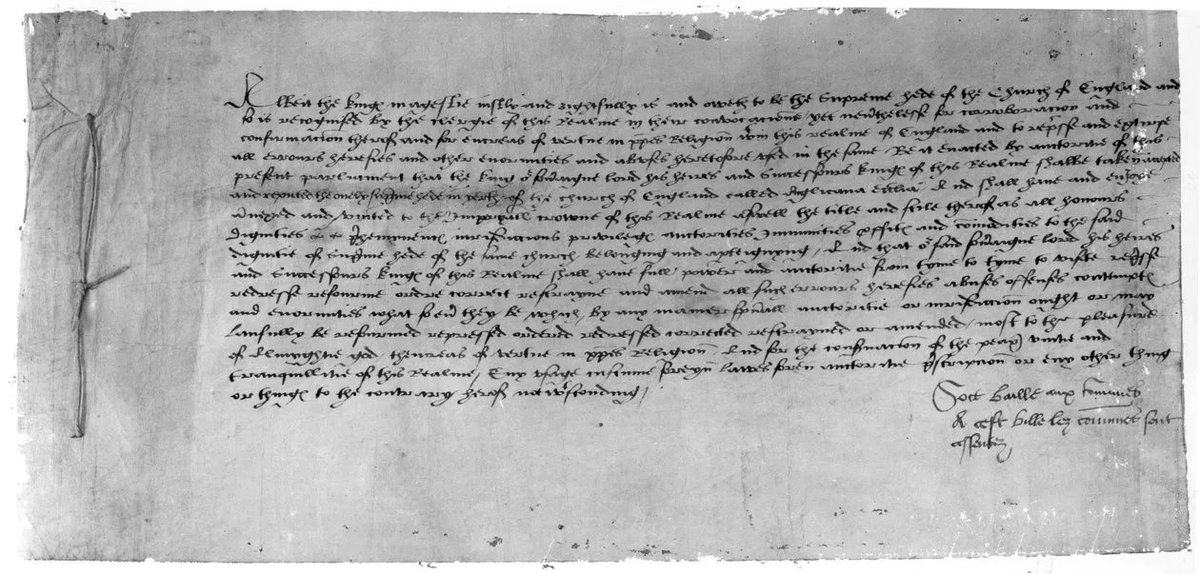 Albeit the kinges magestie iustly and rightfully is and oweth to be the Supreme hede of the Church of England and
so is recognised by the clergie of this Realme in their convocacions yet neu'thelesse for corroboracion and
confirmacion therof and for encreas of vertue in xp̄es Religion wtin this realme of England and to rep'sse and extirpe
all errours heresies and other enormities and abuses heretofore vsed in the same Be it enacted by auctorite of this
present parliament that the king oʳ sou'aigne lord his heires and Successours kinges of this Realme shalbe taken accepted
and reputed the onely sup'me hede in erth of the church of England called Anglicana eccl'ia And shall haue and enioye
annexed and vnited to the Imperyall crowne of this Realme aswell the title and stile therof as all honours
Dignities p'hemynences iurisdictions privileges auctorities Immunities ꝓfites and comodities to the said
dignitie of sup'me hede of the same church belonging and apteignyng / And that oʳ said sou'aigne lord his heires
and Successours kinges of this Realme shall haue full power and auctorite from tyme to tyme to visite rep'sse
redresse refourme ordre correct restrayne and amend all such errours heresies abuses offenses contemptes
and enormities what so eu' they be which by any maner sp'uall auctoritie or iurisdiccion ought or may
laufully be refourmed repressed ordered redressed corrected restrayned or amended / most to the pleasure
of Allmyghtie god thencreas of vertue in xp̄es Religion And for the conseruacion of the peax vnitie and
tranquillitie of this Realme / Eny vsage custume foreyn lawes foren auctoritie p'scripcion or eny other thing
or thinges to the contrary herof notwtstonding /
Soit baille aux comunes
A cest bille lez comunes sont
assentez